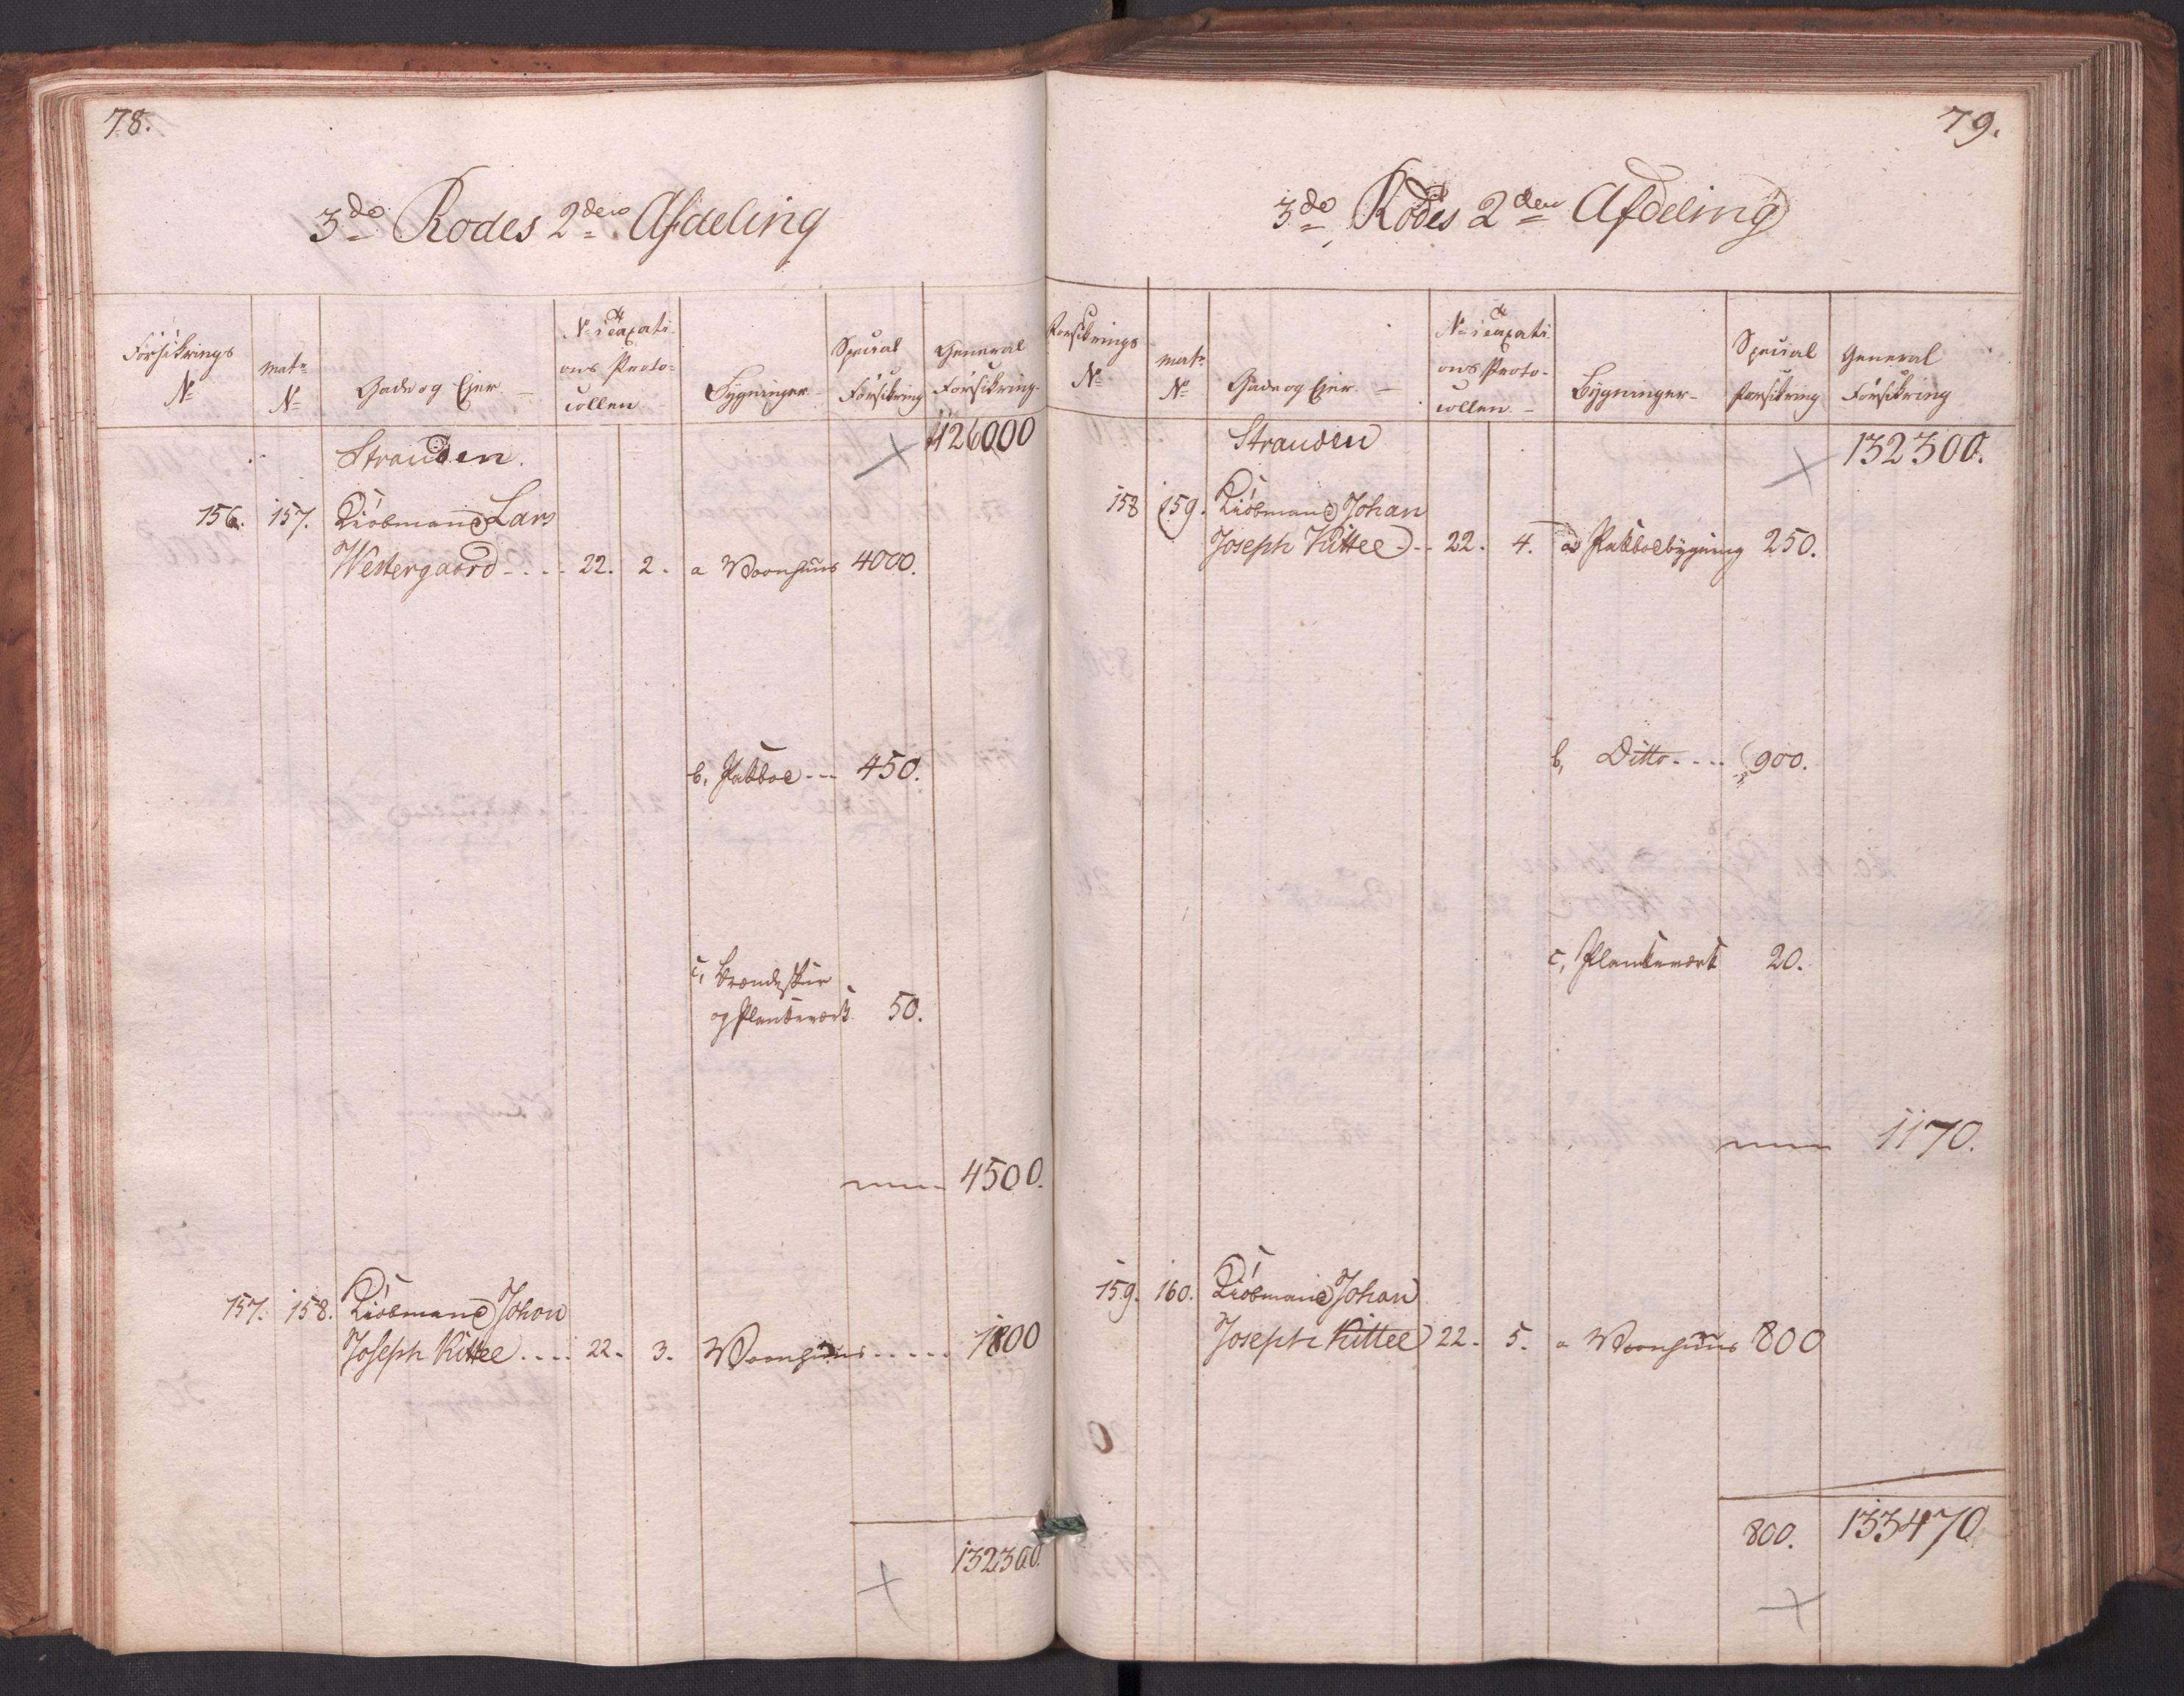 78.
3de Rodes 2den Afdeling
Forsikrings No
Matr No
Gade og Ejer
No i Taxations Protocollen
Bygninger
Special Forsikring
General Forsikring
Stranden. 126000
156. 157. Kiöbmand Lars
Westergaard - - - - 22. 2. a Vaanhuus 4000.
b, Pakboe - - - 450.
c, Brændeskur
og Plankeværk 50.
4500.
157. 158. Kiöbmand Johan
Joseph Kittee . . . . 22. 3. Vaanhuus . . . . . 1800
132300.
79.
3de Rodes 2den Afdeling
Forsikrings No
Matr No
Gade og Ejer
No i Taxations Protocollen
Bygninger
Special Forsikring
General Forsikring
Stranden 132300.
158 159. Kiöbmand Johan
Joseph Kittee - - 22. 4. a Pakboebygning 250.
b, Ditto - - - - 900.
c, Plankeværk 20.
1170.
159. 160. Kiöbmand Johan
Joseph Kittee 22. 5. a Vaanhuus 800
800. 133470